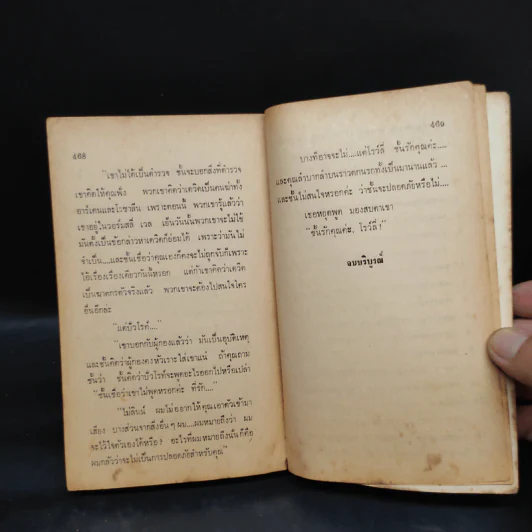 ๔๖๘
"เขาไม่ได้เป็นตำรวจ ชั้นจะบอกสิ่งที่ตำรวจ
เขาคิดให้คุณฟัง พวกเขาคิดว่าเดวิดเป็นคนฆ่าทั้ง
อาร์เดนและโรซาลีน เพราะตอนนี้ พวกเขารู้แล้วว่า
เขาอยู่ในวอร์มสลี่ เวล เย็นวันนั้นพวกเขาจะไม่ใช้
มันตั้งเป็นข้อกล่าวหาเดวิดก็ย่อมได้ เพราะว่ามันไม่
จำเป็น....และชั้นเชื่อว่าคุณเองก็คงจะไม่ถูกจับก็เพราะ
ใช้เรื่องเรื่องเดียวกันนี้หรอก แต่ถ้าเขาคิดว่าเดวิด
เป็นฆาตกรตัวจริงแล้ว พวกเขาจะต้องไปสนใจใคร
อื่นอีกล่ะ
"แต่ปัวโรต์...."
"เขาบอกกับผู้กองแล้วว่า มันเป็นอุบัติเหตุ
และชั้นคิดว่าผู้กองคงหัวเราะใส่เขาแน่ ถ้าคุณถาม
ชั้นว่า ชั้นคิดว่าปัวโรต์จะพูดอะไรออกไปหรือเปล่า
"ชั้นเชื่อว่าเขาไม่พูดหรอกค่ะ ที่รัก...."
"ไม่ลินน์ ผมไม่อยากให้คุณเอาตัวเข้ามา
เสี่ยง บางส่วนจากสิ่งอื่นๆ ผม....ผมหมายถึงว่า ผม
จะไว้ใจตัวเองได้หรือ? อะไรที่ผมหมายถึงนั่นก็คือ
ผมกลัวว่าจะไม่เป็นการปลอดภัยสำหรับคุณ"
๔๖๙
บางทีอาจจะไม่....แต่โรว์ลี่ ชั้นรักคุณค่ะ....
และคุณลำบากลำบนราวตกนรกทั้งเป็นมานานแล้ว ....
และชั้นไม่สนใจหรอกค่ะ ว่าชั้นจะปลอดภัยหรือไม่....
เธอหยุดพูด มองสบตาเขา
"ชั้นรักคุณค่ะ, โรว์ลี่!"
จบบริบูรณ์